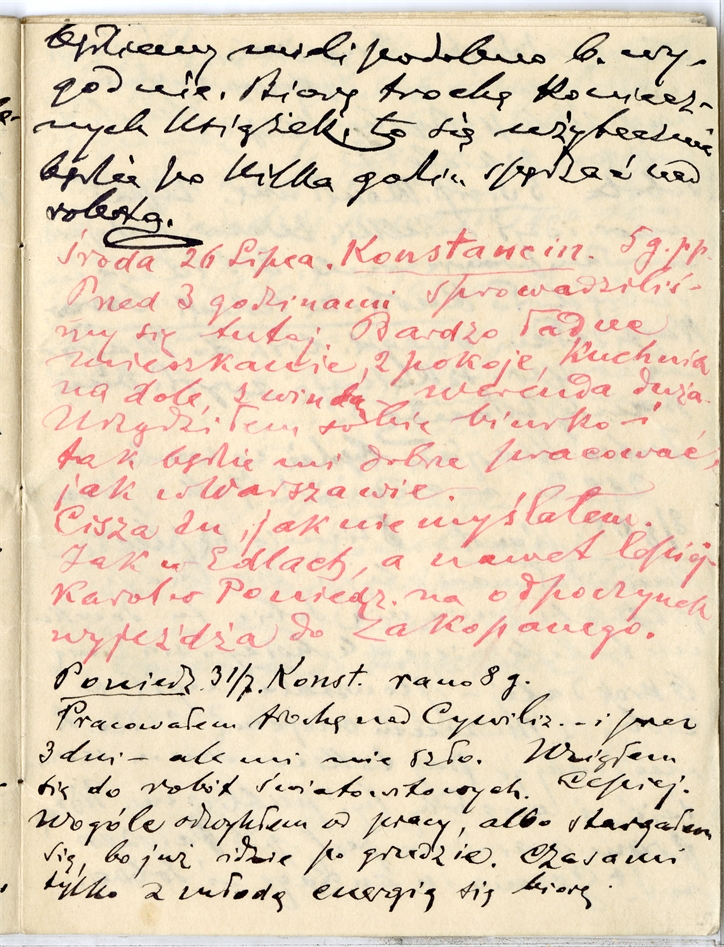 będziemy mieli podobno b. wy-
godnie. Biorę trochę koniecz-
nych książek, to się użytecznie
będzie po kilka godzin spędzać nad
robotą.
Środa 26 Lipca. Konstancin. 5 g. pp.
Przed 3 godzinami sprowadziliś-
my się tutaj. Bardzo ładne
mieszkanie, 2 pokoje, kuchnia
na dole, z windą werenda duża.
Urządziłem sobie biurko i
tak będzie mi dobrze pracować,
jak w Warszawie.
Cisza tu, jak nie myślałem.
Jak w Edlach, a nawet lepiej.
Karol w Poniedz. na odpoczynek
wyjeżdża do Zakopanego.
Poniedz. 31/7. Konst. rano 8 g.
Pracowałem trochę nad Cywiliz. - i przez
3 dni - ale mi nie szło. Wziąłem
się do robót światowitowych. Lepiej.
Wogóle odwykłem od pracy, albo stargałem
się, bo już idzie po grudzie. Czasami
tylko z młodą energią się biorę.